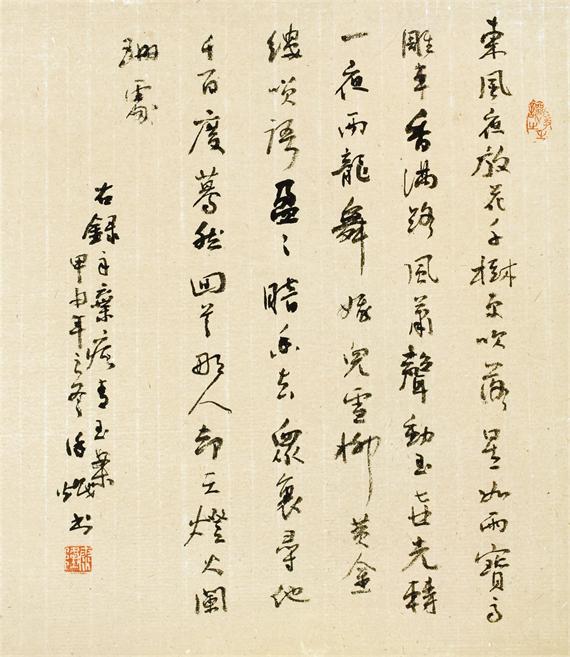 東風夜放花千樹更吹落星如雨寶馬
雕車香滿路風蕭聲動玉壺光轉
一夜雨龍舞娥兒雪柳黃金
縷笑語盈〻暗香去眾裏尋他
千百度驀然回首那人却在燈火闌
珊處
右錄辛棄疾青玉案
甲申年之冬書